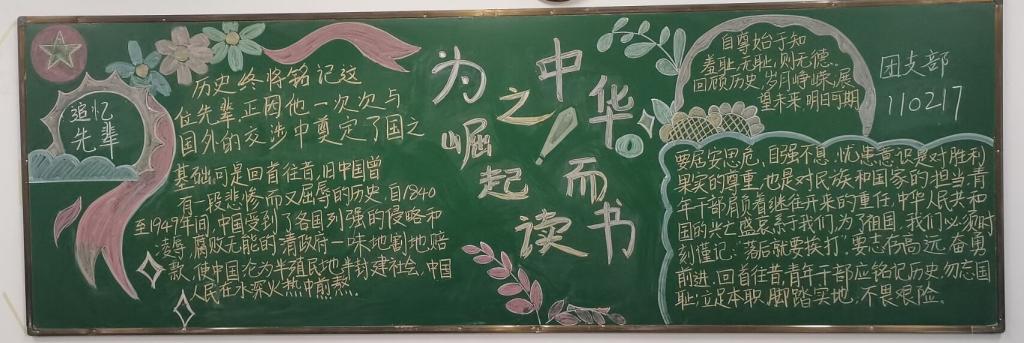 追忆
先辈
历史终将铭记这
位先辈,正因他一次次与
国外的交涉中奠定了国之
基础可是回首往昔,旧中国曾
有一段悲惨而又屈辱的历史,自1840
至1949年间,中国受到了各国列强的侵略和
凌辱,腐败无能的清政府一味地割地赔
款,使中国沦为半殖民地半封建社会,中国
人民在水深火热中煎熬。
为中华
之
崛起而
读书
自尊始于知
羞耻,无耻,则无德。
回顾历史,岁月峥嵘,展
望未来,明日可期
团支部
110217
要居安思危,自强不息,忧患意识是对胜利
果实的尊重,也是对民族和国家的担当,青
年干部肩负着继往开来的重任,中华人民共和
国的兴亡盛衰系于我们,为了祖国,我们必须时
刻谨记:"落后就要挨打",要志存高远,奋勇
前进,回首往昔,青年干部应铭记历史,勿忘国
耻;立足本职,脚踏实地,不畏艰险。